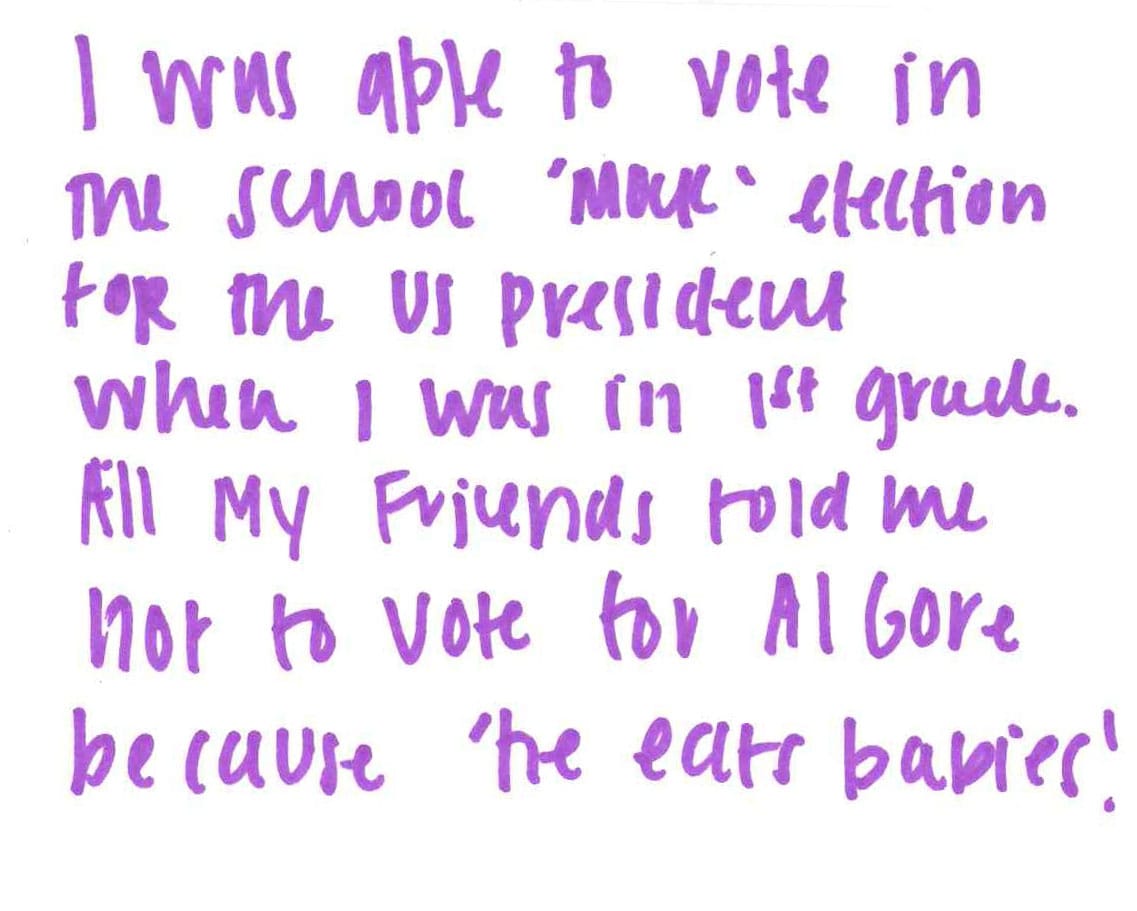 I was able to vote in
the school 'Mock' election
for the US president
when I was in 1st grade.
All My Friends told me
not to vote for Al Gore
because 'he eats babies!'